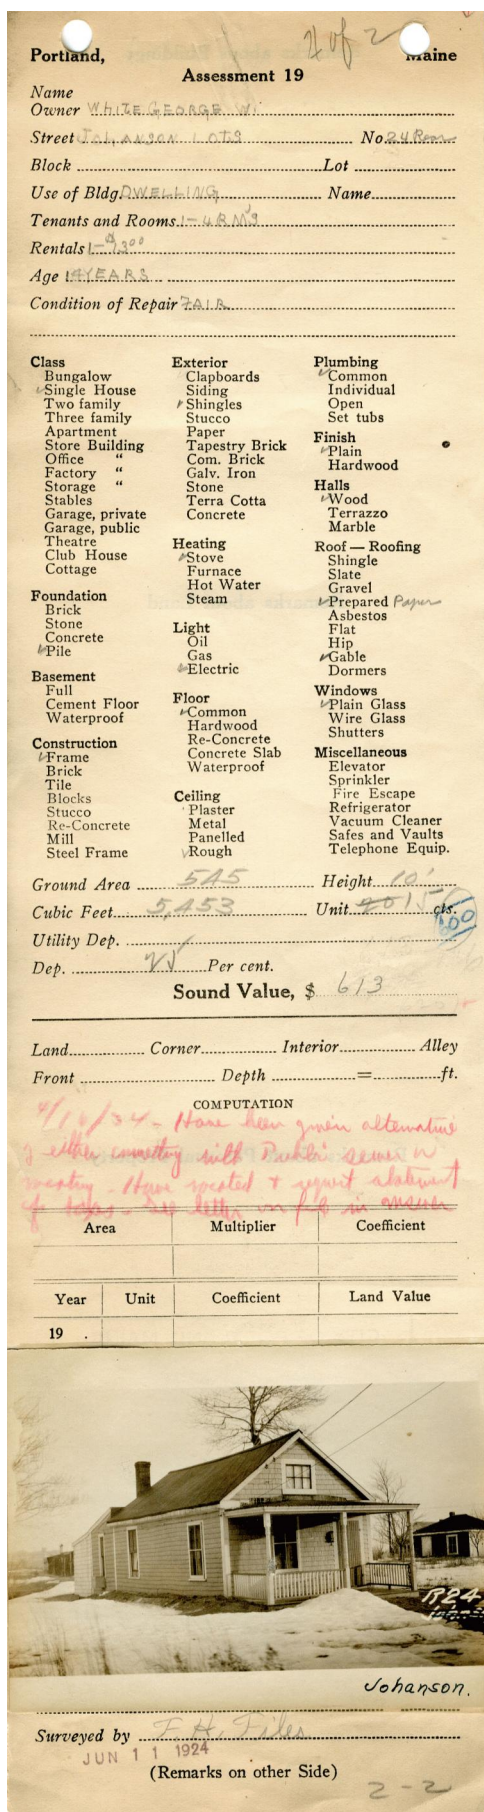 2 of 2
Portland, Maine
Assessment 19
Name
Owner WHITE GEORGE W.
Street JOHANSON LOTS No. 24 Rear
Block Lot
Use of Bldg. DWELLING Name
Tenants and Rooms 1-4 RM'S
Rentals 1-$13.00
Age 14 YEARS
Condition of Repair FAIR
Class
Bungalow
Single House
Two family
Three family
Apartment
Store Building
Office "
Factory "
Storage "
Stables
Garage, private
Garage, public
Theatre
Club House
Cottage
Foundation
Brick
Stone
Concrete
Pile
Basement
Full
Cement Floor
Waterproof
Construction
Frame
Brick
Tile
Blocks
Stucco
Re-Concrete
Mill
Steel Frame
Exterior
Clapboards
Siding
Shingles
Stucco
Paper
Tapestry Brick
Com. Brick
Galv. Iron
Stone
Terra Cotta
Concrete
Heating
Stove
Furnace
Hot Water
Steam
Light
Oil
Gas
Electric
Floor
Common
Hardwood
Re-Concrete
Concrete Slab
Waterproof
Ceiling
Plaster
Metal
Panelled
Rough
Plumbing
Common
Individual
Open
Set tubs
Finish
Plain
Hardwood
Halls
Wood
Terrazzo
Marble
Roof — Roofing
Shingle
Slate
Gravel
Prepared Paper
Asbestos
Flat
Hip
Gable
Dormers
Windows
Plain Glass
Wire Glass
Shutters
Miscellaneous
Elevator
Sprinkler
Fire Escape
Refrigerator
Vacuum Cleaner
Safes and Vaults
Telephone Equip.
Ground Area 545 Height 10'
Cubic Feet 5,453 Unit 20 15 cts.
600
Utility Dep.
Dep. 25 Per cent.
Sound Value, $ 613
Land Corner Interior Alley
Front Depth = ft.
COMPUTATION
4/16/34 - Have been given alternative
of either connecting with Public sewer or
vacating. Have vacated & request abatement
of taxes. See letter on file in answer
Area Multiplier Coefficient
Year Unit Coefficient Land Value
19 .
R24
Johanson.
Surveyed by F. H. Files
JUN 11 1924
(Remarks on other Side)
2-2